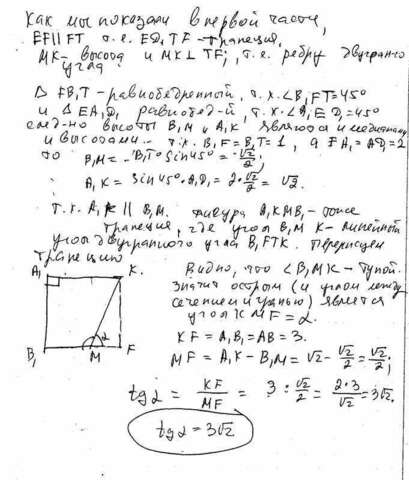 Как мы показали в первой части,
EF∥FT т.е. ED₁TF - трапеция.
MK - высота и MK⊥TF, т.е. ребру двугранно
угла
Δ FB₁T - равнобедренный, т.к. ∠B₁FT=45°
и Δ EA₁D₁ равнобед-й, т.к. ∠A₁ED₁=45°
след-но высоты B₁M и A₁K являются и медианами
и высотами. т.к. B₁F=B₁T=1, а EA₁=A₁D₁=2
то B₁M = B₁T·sin45° = √2/2,
A₁K = sin45°·A₁D₁ = 2·√2/2 = √2.
т.к. A₁K ∥ B₁M. фигура A₁KMB₁ - тоже
трапеция, где угол B₁MK - линейный
угол двугранного угла B₁FTK. Перерисуем
трапецию
A₁ K
B₁ M F
2
Видно, что ∠B₁MK - тупой.
Значит острым (и углом между
сечением и гранью) является
угол KMF = α.
KF = A₁B₁ = AB = 3.
MF = A₁K - B₁M = √2 - √2/2 = √2/2;
tg α = KF/MF = 3 : √2/2 = 2·3/√2 = 3√2.
tg α = 3√2